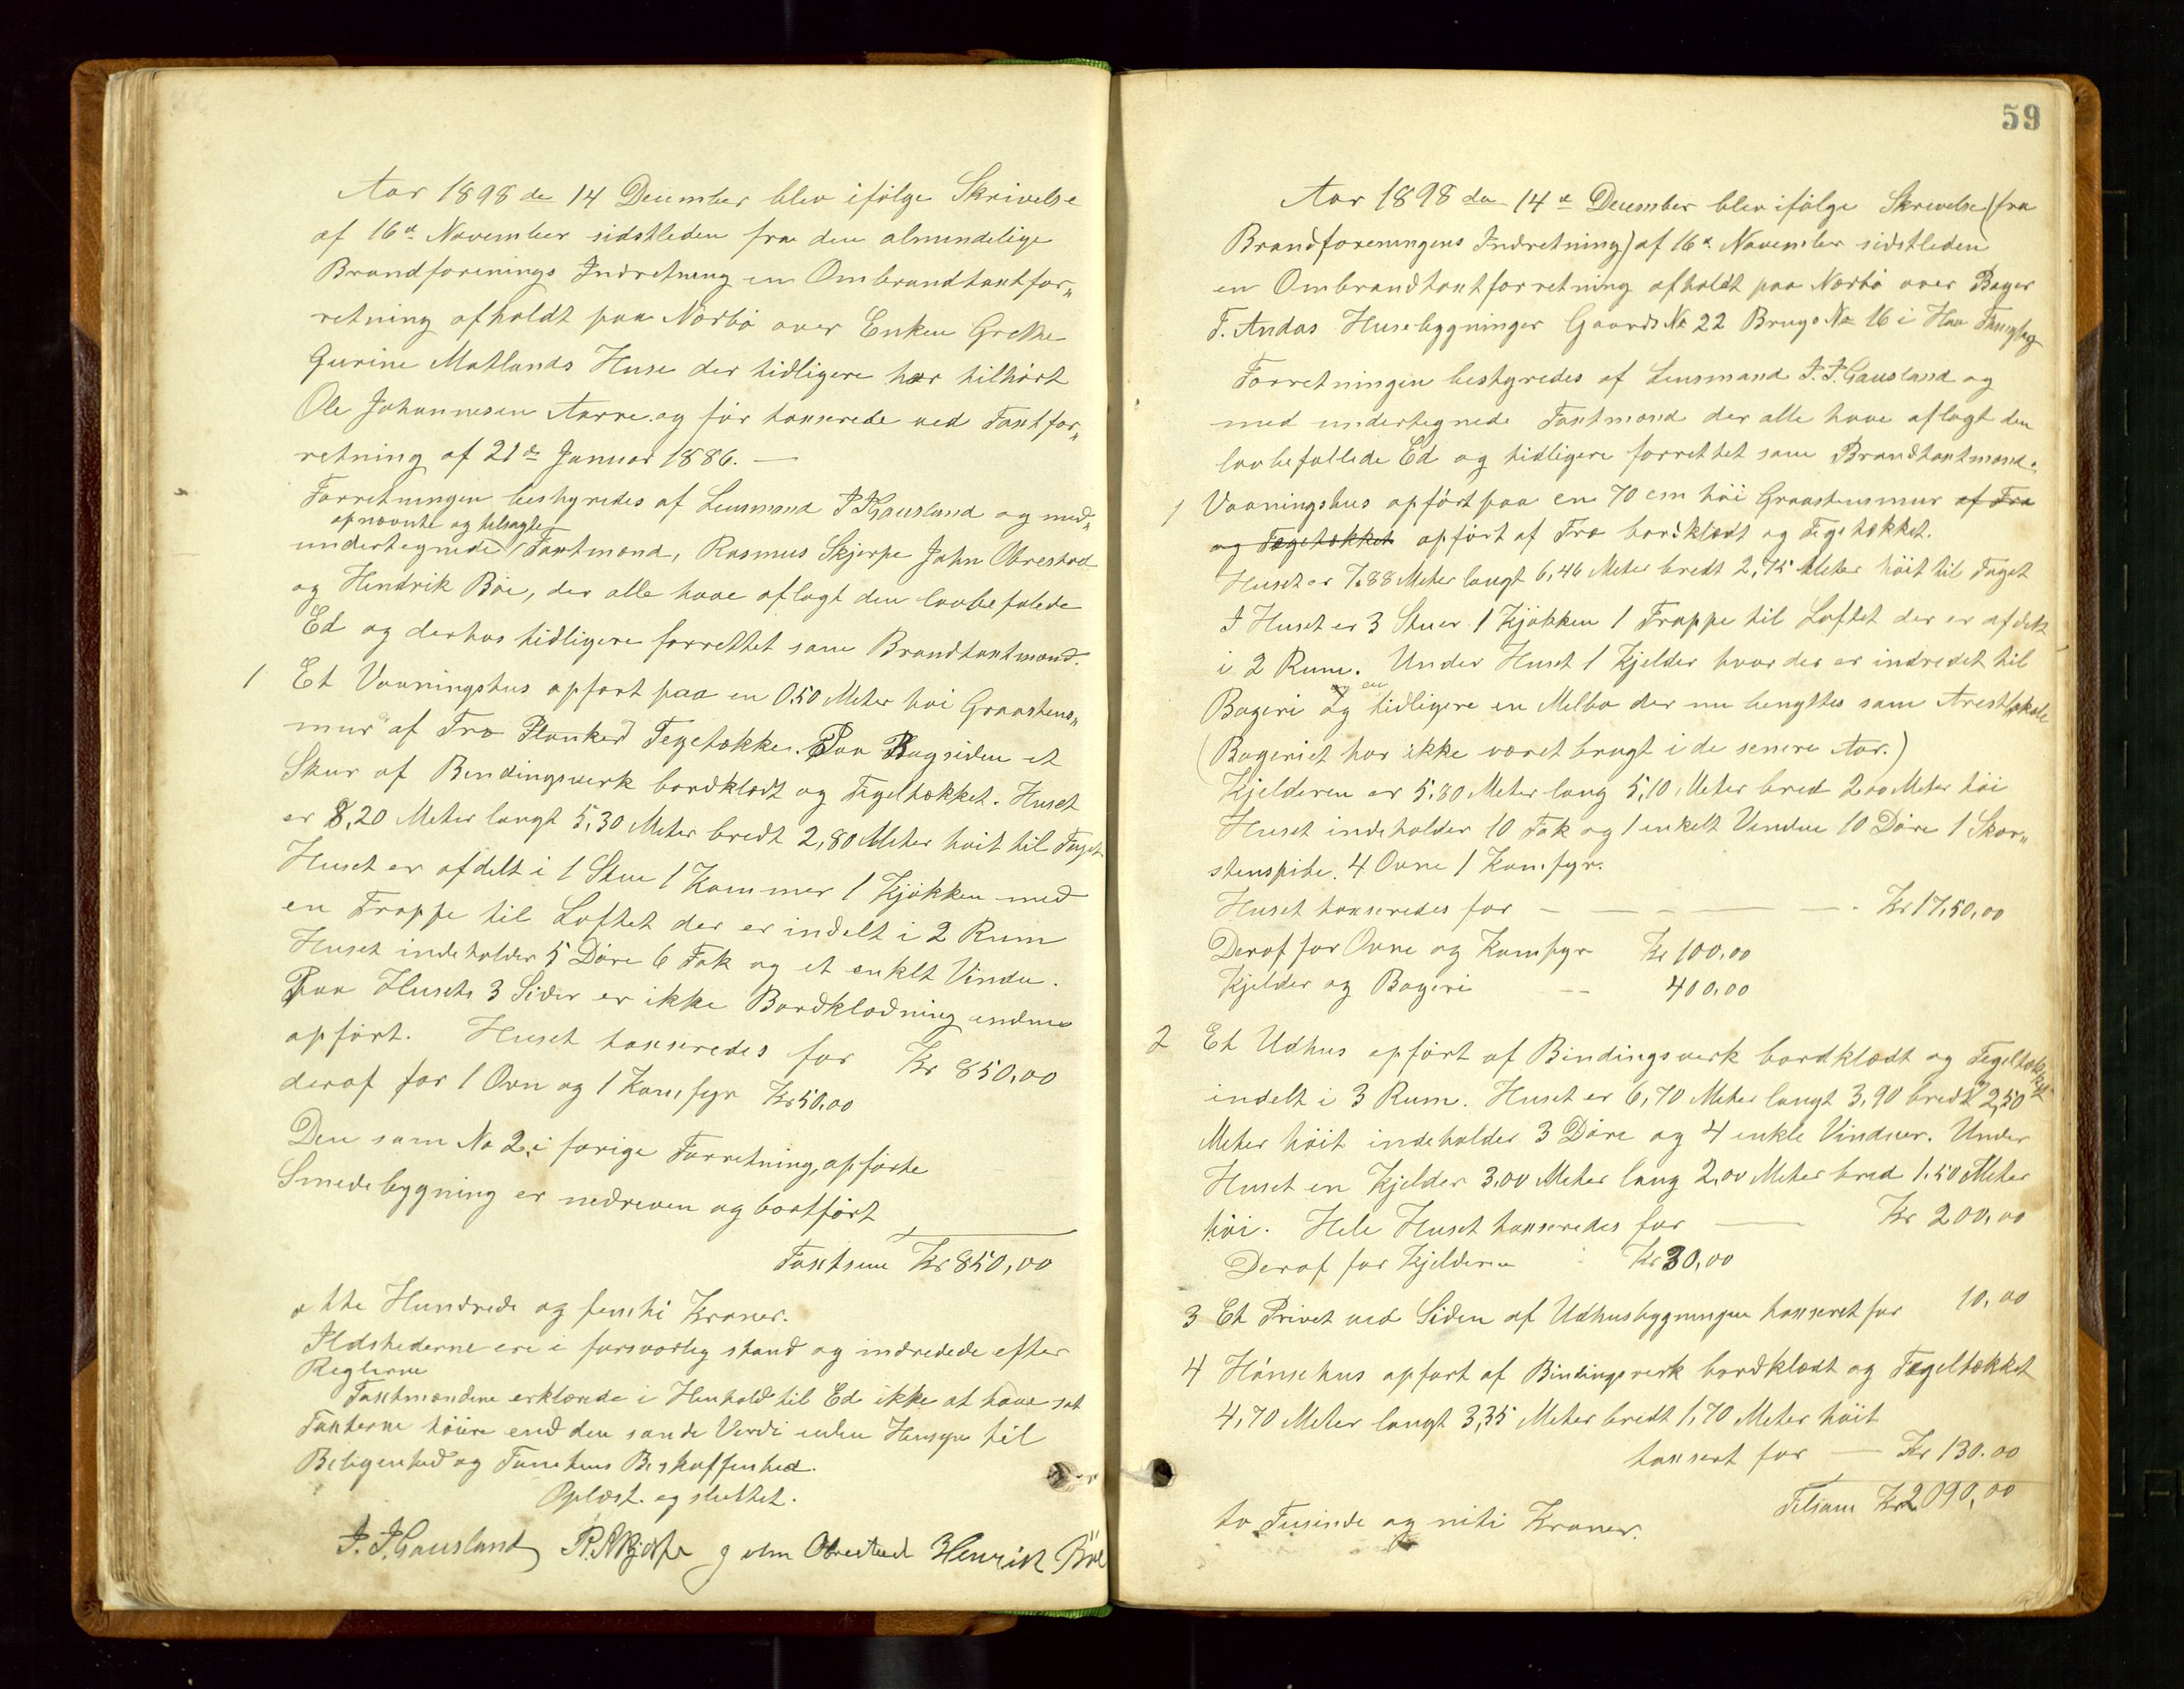 Aar 1898 den 14 December blev ifølge Skrivelse
af 16de November sidstleden fra den almindelige
Brandforenings Indretning en Ombrandtaxtfor„
retning afholdt paa Nærbø over Enken Grethe
Gurine Matlands Huse der tidligere har tilhørt
Ole Johannesen Aarre og før taxserede ved Taxtfor„
retning af 21de Januar 1886. —
Forretningen bestyredes af Lensmand J. J. Gausland og med„
opnævnte og tilsagte
undertegnede Taxtmænd, Rasmus Skjerpe John Obrestad
og Hendrik Bøe, der alle have aflagt den lovbefalede
Ed og derhos tidligere forrettet som Brandtaxtmænd.
1 Et Vaaningshus opført paa en 0,50 Meter høi Graastens„
mur af Træ Planker Tegetækket. Paa Bagsiden et
Skur af Bindingsværk bordklædt og Tegeltækket. Huset
er 8,20 Meter langt 5,30 Meter bredt 2,80 Meter høit til Taget
Huset er afdelt i 1 Stue 1 Kammer 1 Kjøkken med
en Trappe til Loftet der er indelt i 2 Rum
Huset indeholder 5 Døre 6 Fak og et enklt Vindu.
Paa Husets 3 Sider er ikke Bordklædning endnu
opført. Huset taxseredes for Kr 850,00
deraf for 1 Ovn og 1 Komfyr Kr 50,00
Den som No 2 i forige Forretning, opførte
Smedebygning er nedreven og bortført
Taxtsum Kr 850,00
otte Hundrede og femti Kroner.
Ildstederne ere i forsvarlig stand og indredede efter
Reglerne
Taxtmændene erklærede i Henhold til Ed ikke at have sat
Taxterne høiere end den sande Verdi uden Hensyn til
Beligenhed og Tomtens Beskaffenhed.
Oplæst og sluttet.
J. J. Gausland R. Skjerpe John Obrestad Henrik Böe
59
Aar 1898 den 14de December blev ifølge Skrivelse (fra
Brandforeningens Indretning) af 16de November sidstleden
en Ombrandtaxtforretning afholdt paa Nærbø over Bager
T. Andas Husebygninger Gaards No 22 Brugs No 16 i Haa Thinglag
Forretningen bestyredes af Lensmand J. J. Gausland og
med undertegnede Taxtmænd der alle have aflagt den
lovbefallede Ed og tidligere forrettet som Brandtaxtmænd.
1 Vaaningshus opført paa en 70 cm høi Graastensmur af Træ
og Tegetækket opført af Træ bordklædt og Tegetækket.
Huset er 7,88 Meter langt 6,46 Meter bredt 2,75 Meter høit til Taget
I Huset er 3 Stuer 1 Kjøkken 1 Trappe til Loftet der er afdelt
i 2 Rum. Under Huset 1 Kjelder hvor der er indredet til
og en
Bageri og tidligere en Melbo der nu benyttes som Arestlokale
(Bageriet har ikke været brugt i de senere Aar.)
Kjelderen er 5,80 Meter lang 5,10 Meter bred 2,00 Meter høi
Huset indeholder 10 Fak og 1 enkelt Vindue 10 Døre 1 Skor„
stenspibe. 4 Ovne 1 Komfyr.
Huset taxseredes for — — — — — — Kr 17,50,00
Deraf for Ovne og Komfyr Kr 100,00
Kjelder og Bageri — 400,00
2 Et Udhus opført af Bindingsverk bordklædt og Tegeltækket
indelt i 3 Rum. Huset er 6,70 Meter langt 3,90 bredt 2,50
Meter høit indeholder 3 Døre og 4 enkle Vinduer. Under
Huset en Kjelder 3,00 Meter lang 2,00 Meter bred 1,50 Meter
høi. Hele Huset taxseredes for — Kr 200,00
Deraf for Kjelderen Kr 30,00
3 Et Privet ved Siden af Udhusbygningen taxseret for 10,00
4 Hønsehus opført af Bindingsverk bordklædt og Tegeltækket
4,70 Meter langt 3,35 Meter bredt 1,70 Meter høit
taxsert for — Kr 130.00
Tilsam Kr 2090,00
to Tusinde og niti Kroner.